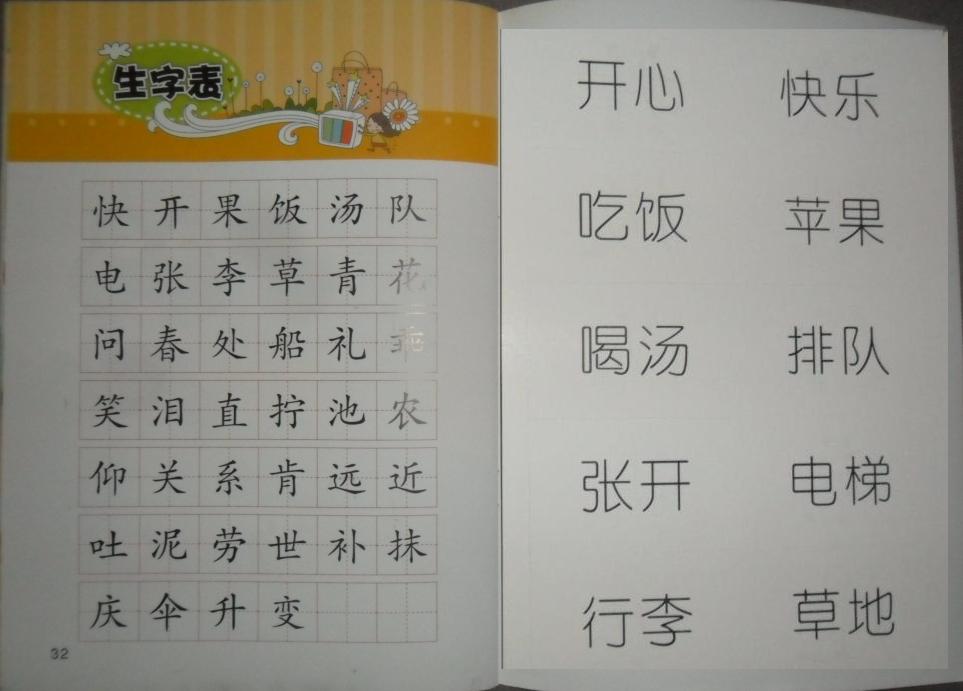 生字表
快开果饭汤队
电张李草青花
问春处船礼乖
笑泪直拧池农
仰关系肯远近
吐泥劳世补抹
庆伞升变
32
开心 快乐
吃饭 苹果
喝汤 排队
张开 电梯
行李 草地